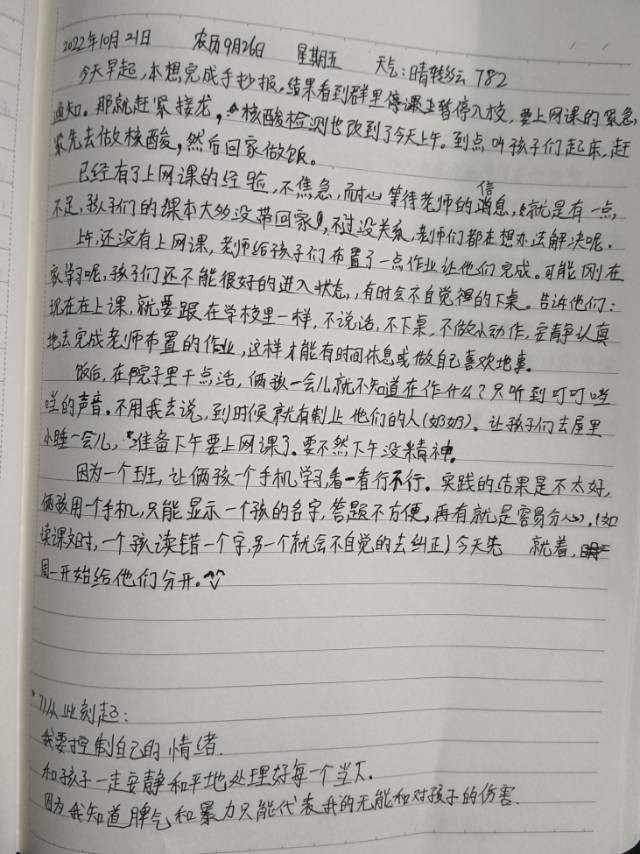 2022年10月21日 农历9月26日 星期五 天气:晴转多云 782
今天早起,本想完成手抄报,结果看到群里停课上暂停入校,要上网课的紧急
通知。那就赶紧接龙,核酸检测也改到了今天上午。到点叫孩子们起床,赶
紧先去做核酸,然后回家做饭。
已经有了上网课的经验,不焦急,耐心等待老师的消信息,就是有一点,
不足,孩子们的课本大多没带回家,不过没关系,老师们都在想办法解决呢。
上午,还没有上网课,老师给孩子们布置了一点作业让他们完成。可能刚在
家学习呢,孩子们还不能很好的进入状态,有时会不自觉得的下桌。告诉他们:
现在在上课,就要跟在学校里一样,不说话,不下桌,不做小动作,安静认真
地去完成老师布置的作业,这样才能有时间休息或做自己喜欢地事。
饭后,在院子里干点活,俩孩一会儿就不知道在作什么?只听到叮叮当
当的声音。不用我去说,到时候就有制止他们的人(奶奶)。让孩子们去屋里
小睡一会儿,准备下午要上网课了。要不然下午没精神。
因为一个班,让俩孩一个手机学习,看一看行不行。实践的结果是不太好,
俩孩用一个手机,只能显示一个孩的名字,答题不方便,再有就是容易分心,(如
读课文时,一个孩读错一个字,另一个就会不自觉的去纠正)今天先 就着,
周一开始给他们分开。
从此刻起:
我要控制自己的情绪.
和孩子一走安静和平地处理好每一个当下.
因为我知道脾气和暴力只能代表我的无能和对孩子的伤害.